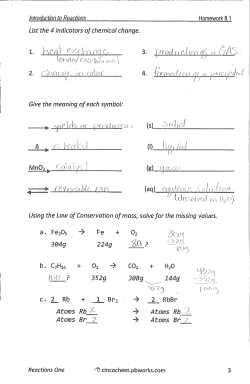 Introduction to Reactions Homework 8.1
List the 4 indicators of chemical change.
1. heat exchange 3. production of a GAS
(endo/exothermic)
2. change in color 4. formation of a precipitate
Give the meaning of each symbol:
→ yields or produces (s) solid
Δ is heated (l) liquid
MnO₂ catalyst (g) gas
reversible rxn (aq) aqueous solution
(dissolved in H₂O)
Using the Law of Conservation of mass, solve for the missing values.
a. Fe₂O₃ → Fe + O₂ 304
304g 224g 80 ? -224
80g
b. C₇H₁₆ + O₂ → CO₂ + H₂O 452g
100 ? 352g 308g 144g -352g
452g 100g
c. 2 Rb + 1 Br₂ → 2 RbBr
Atoms Rb 2 → Atoms Rb 2
Atoms Br 2 → Atoms Br 2
Reactions One cincochem.pbworks.com 3